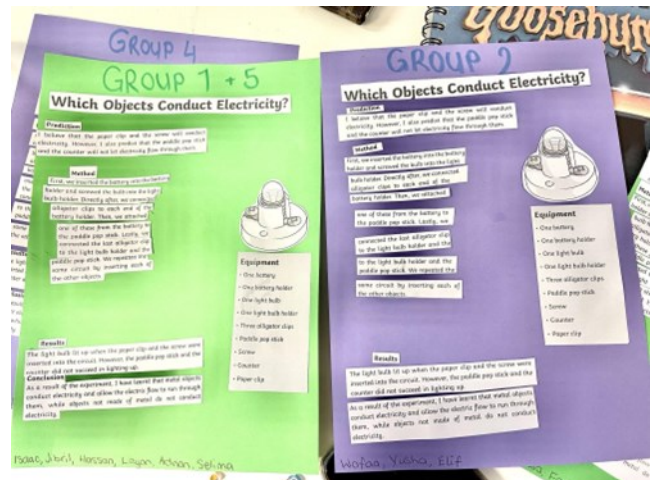 Goosebum
GROUP 4
GROUP 1 + 5
Which Objects Conduct Electricity?
Prediction
I believe that the paper clip and the screw will conduct
electricity. However, I also predict that the paddle pop stick
and the counter will not let electricity flow through them.
Method
First, we inserted the battery into the battery
holder and screwed the bulb into the light
bulb holder. Directly after, we connected
alligator clips to each end of the
battery holder. Then, we attached
one of these from the battery to
the paddle pop stick. Lastly, we
connected the last alligator clip
to the light bulb holder and the
paddle pop stick. We repeated the
same circuit by inserting each of
the other objects.
Equipment
- One battery
- One battery holder
- One light bulb
- One light bulb holder
- Three alligator clips
- Paddle pop stick
- Screw
- Counter
- Paper clip
Results
The light bulb lit up when the paper clip and the screw were
inserted into the circuit. However, the paddle pop stick and the
counter did not succeed in lighting up.
Conclusion
As a result of the experiment, I have learnt that metal objects
conduct electricity and allow the electric flow to run through
them, while objects not made of metal do not conduct
electricity.
Isaac, Jibril, Hassan, Layan, Adnan, Selima
GROUP 2
Which Objects Conduct Electricity?
Prediction
I believe that the paper clip and the screw will conduct
electricity. However, I also predict that the paddle pop stick
and the counter will not let electricity flow through them.
Method
First, we inserted the battery into the battery
holder and screwed the bulb into the light
bulb holder. Directly after, we connected
alligator clips to each end of the
battery holder. Then, we attached
one of these from the battery to
the paddle pop stick. Lastly, we
connected the last alligator clip
to the light bulb holder and the
to the light bulb holder and the
paddle pop stick. We repeated the
same circuit by inserting each of
the other objects.
Equipment
- One battery
- One battery holder
- One light bulb
- One light bulb holder
- Three alligator clips
- Paddle pop stick
- Screw
- Counter
- Paper clip
Results
The light bulb lit up when the paper clip and the screw were
inserted into the circuit. However, the paddle pop stick and the
counter did not succeed in lighting up.
As a result of the experiment, I have learnt that metal objects
conduct electricity and allow the electric flow to run through
them, while objects not made of metal do not conduct
electricity.
Wafaa, Yusha, Elif